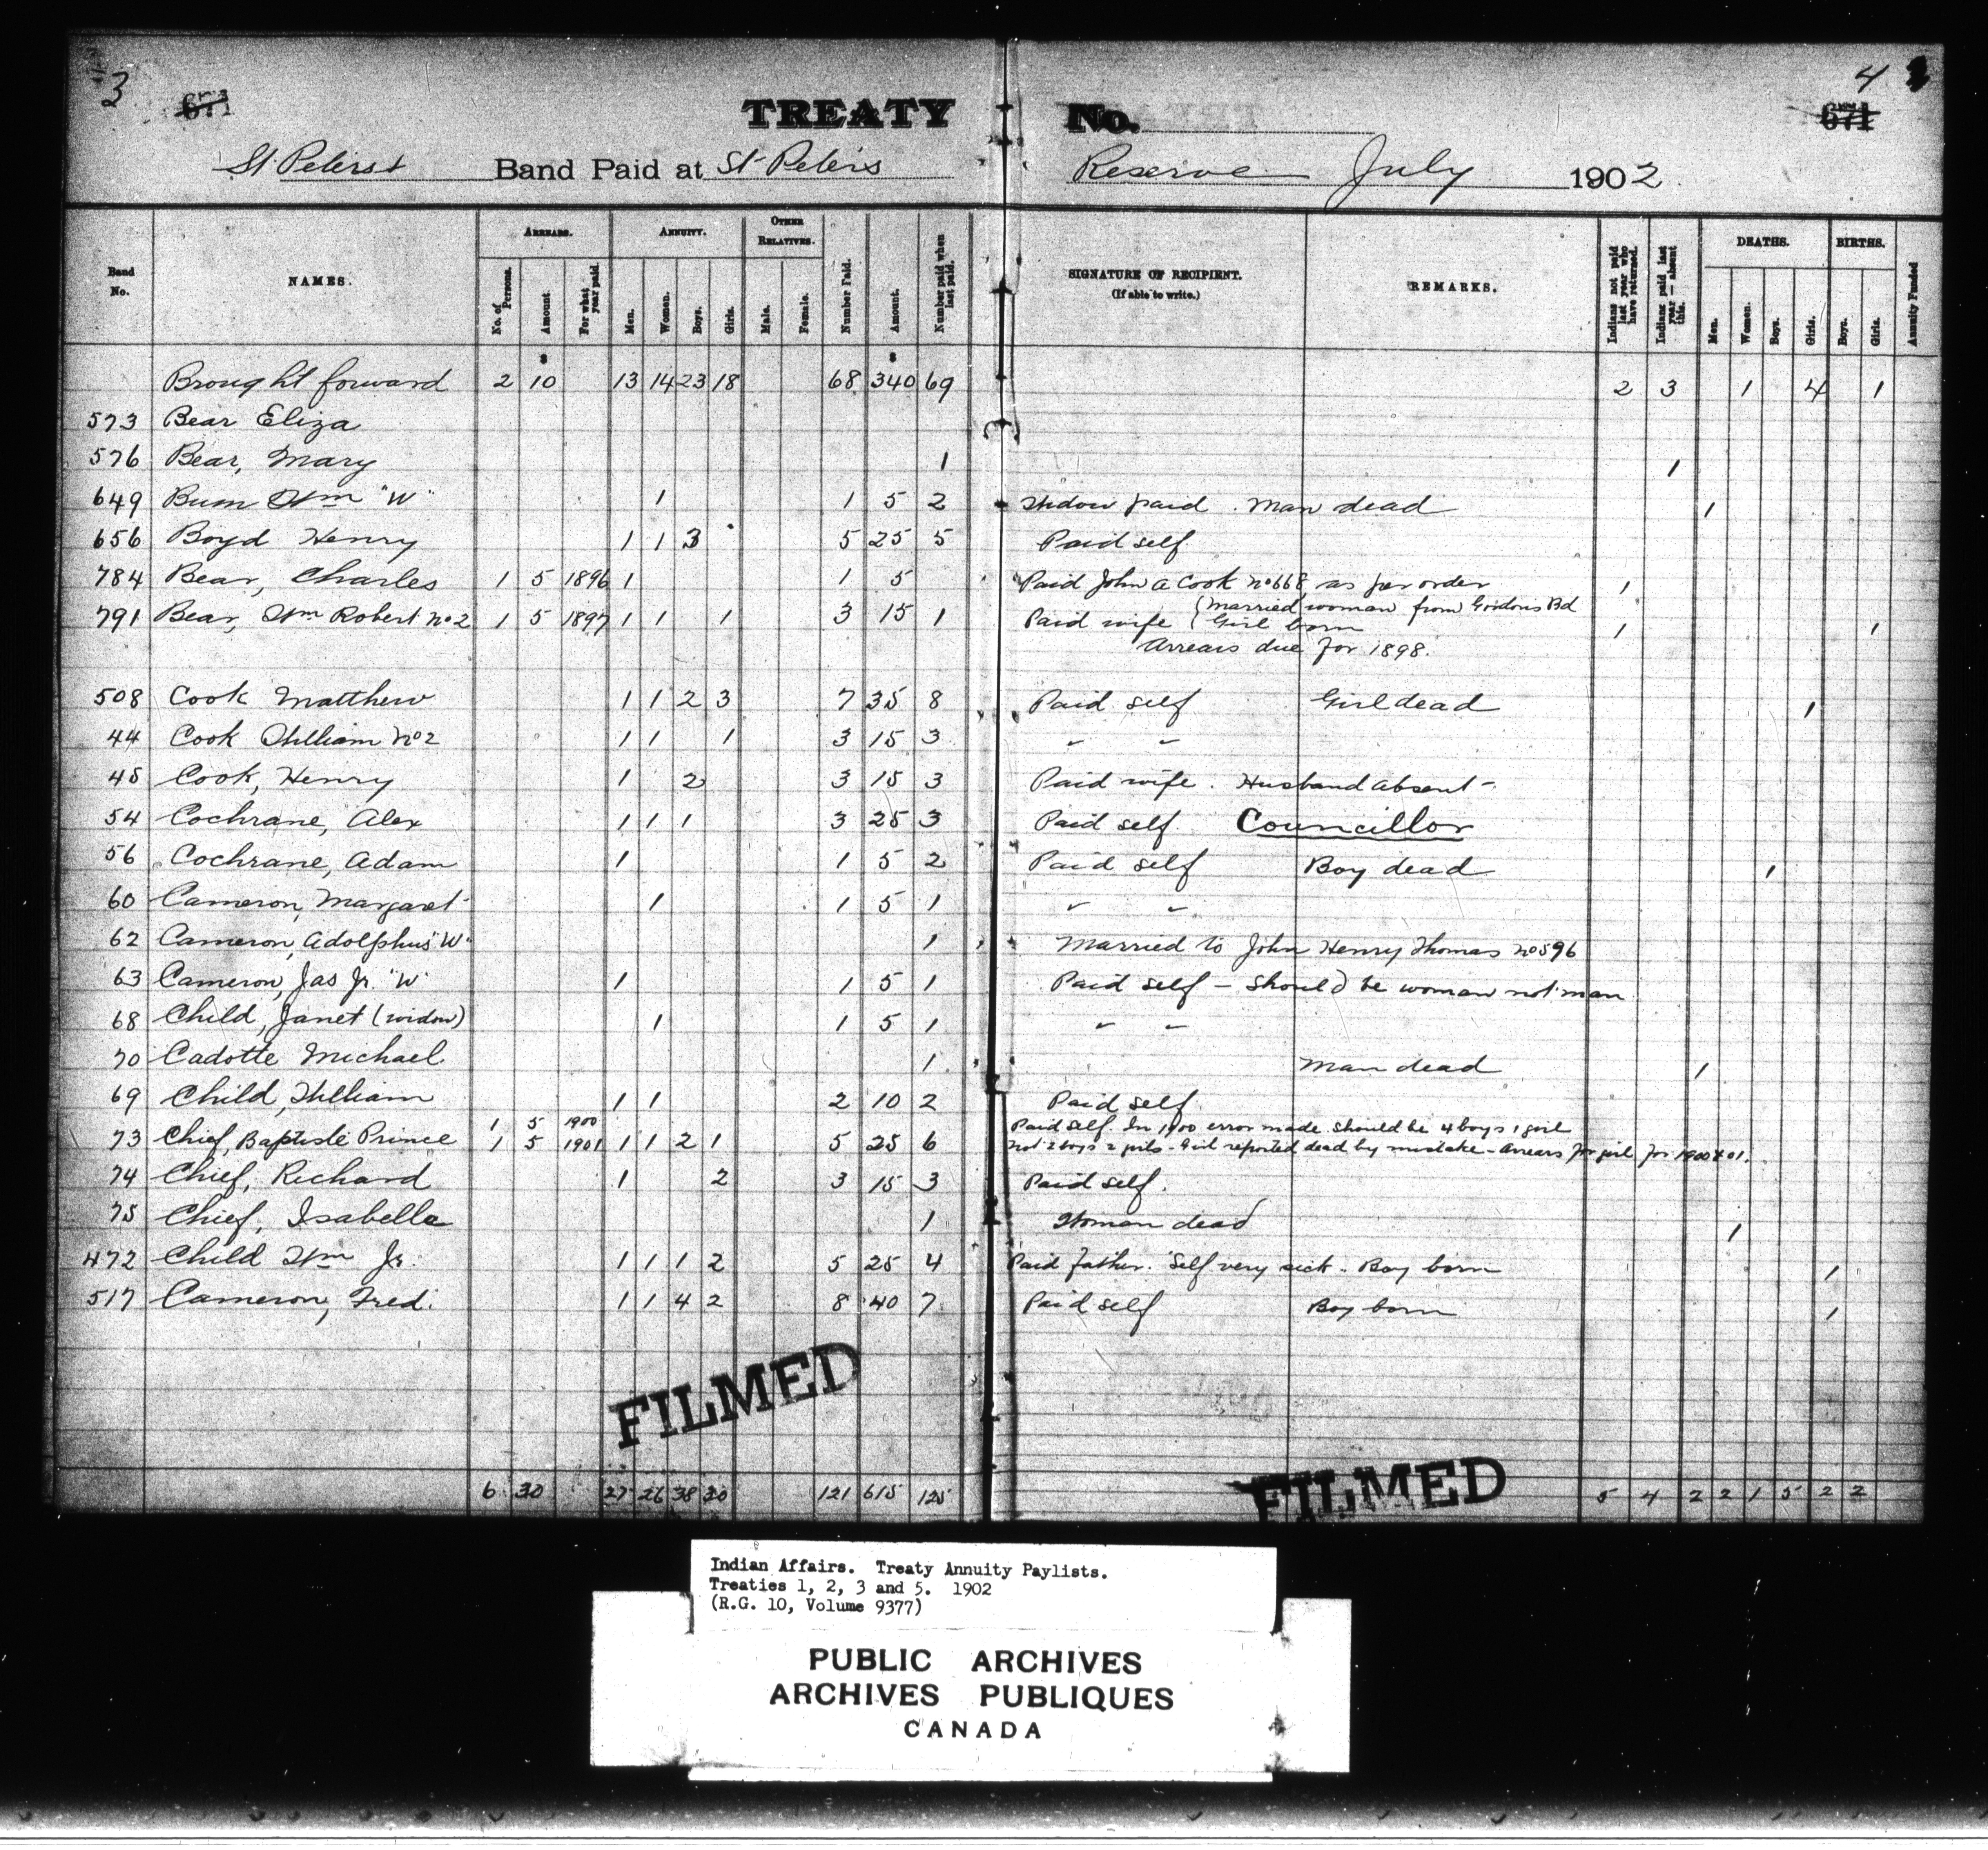 3 671 TREATY No. 4
671
St Peters Band Paid at St Peters Reserve July 1902
Band No. NAMES. ARREARS. ANNUITY. OTHER RELATIVES. Number Paid. Amount. Number paid when last paid. SIGNATURE OF RECIPIENT. (If able to write.) REMARKS. Indians not paid last year who have returned. Indians paid last year — absent this. DEATHS. BIRTHS. Annuity Funded
No. of Persons. Amount For what year paid. Men. Women. Boys. Girls. Male. Female. Men. Women. Boys. Girls. Boys. Girls.
Brought forward 2 10 13 14 23 18 68 340 69 2 3 1 4 1
573 Bear Eliza
576 Bear, Mary 1 1
649 Wm "W" 1 1 5 2 Widow paid. Man dead 1
656 Boyd Henry 1 1 3 5 25 5 Paid self
784 Bear, Charles 1 5 1896 1 1 5 Paid John A Cook No 668 as per order 1
791 Bear, Wm Robert No 2 1 5 1897 1 1 1 3 15 1 Paid wife (Married woman from Gordon's Bd
Girl born 1 1
Arrears due for 1898.
508 Cook Matthew 1 1 2 3 7 35 8 Paid self Girl dead 1
44 Cook William No 2 1 1 1 3 15 3 " "
45 Cook, Henry 1 2 3 15 3 Paid wife. Husband absent -
54 Cochrane, Alex 1 1 1 3 25 3 Paid self. Councillor
56 Cochrane, Adam 1 1 5 2 Paid self Boy dead 1
60 Cameron, Margaret 1 1 5 1 " "
62 Cameron, Adolphus "W" 1 Married to John Henry Thomas No 596
63 Cameron, Jas Jr. "W" 1 1 5 1 Paid self - should be woman not man
68 Child, Janet (widow) 1 1 5 1 " "
70 Cadotte Michael 1 Man dead 1
69 Child, William 1 1 2 10 2 Paid self
1 5 1900 Paid self. In 1900 error made should be 4 boys 1 girl
73 Chief, Baptiste Prince 1 5 1901 1 1 2 1 5 25 6 not 2 boys 2 girls - Girl reported dead by mistake - Arrears for girl for 1900 & 01.
74 Chief, Richard 1 2 3 15 3 Paid self.
75 Chief, Isabella 1 Woman dead 1
472 Child Wm Jr. 1 1 1 2 5 25 4 Paid father. Self very sick - Boy born 1
517 Cameron, Fred. 1 1 4 2 8 40 7 Paid self Boy born 1
FILMED
FILMED
6 30 27 26 38 30 121 615 125 5 4 2 2 1 5 2 2
Indian Affairs. Treaty Annuity Paylists.
Treaties 1, 2, 3 and 5. 1902
(R.G. 10, Volume 9377)
PUBLIC ARCHIVES
ARCHIVES PUBLIQUES
CANADA